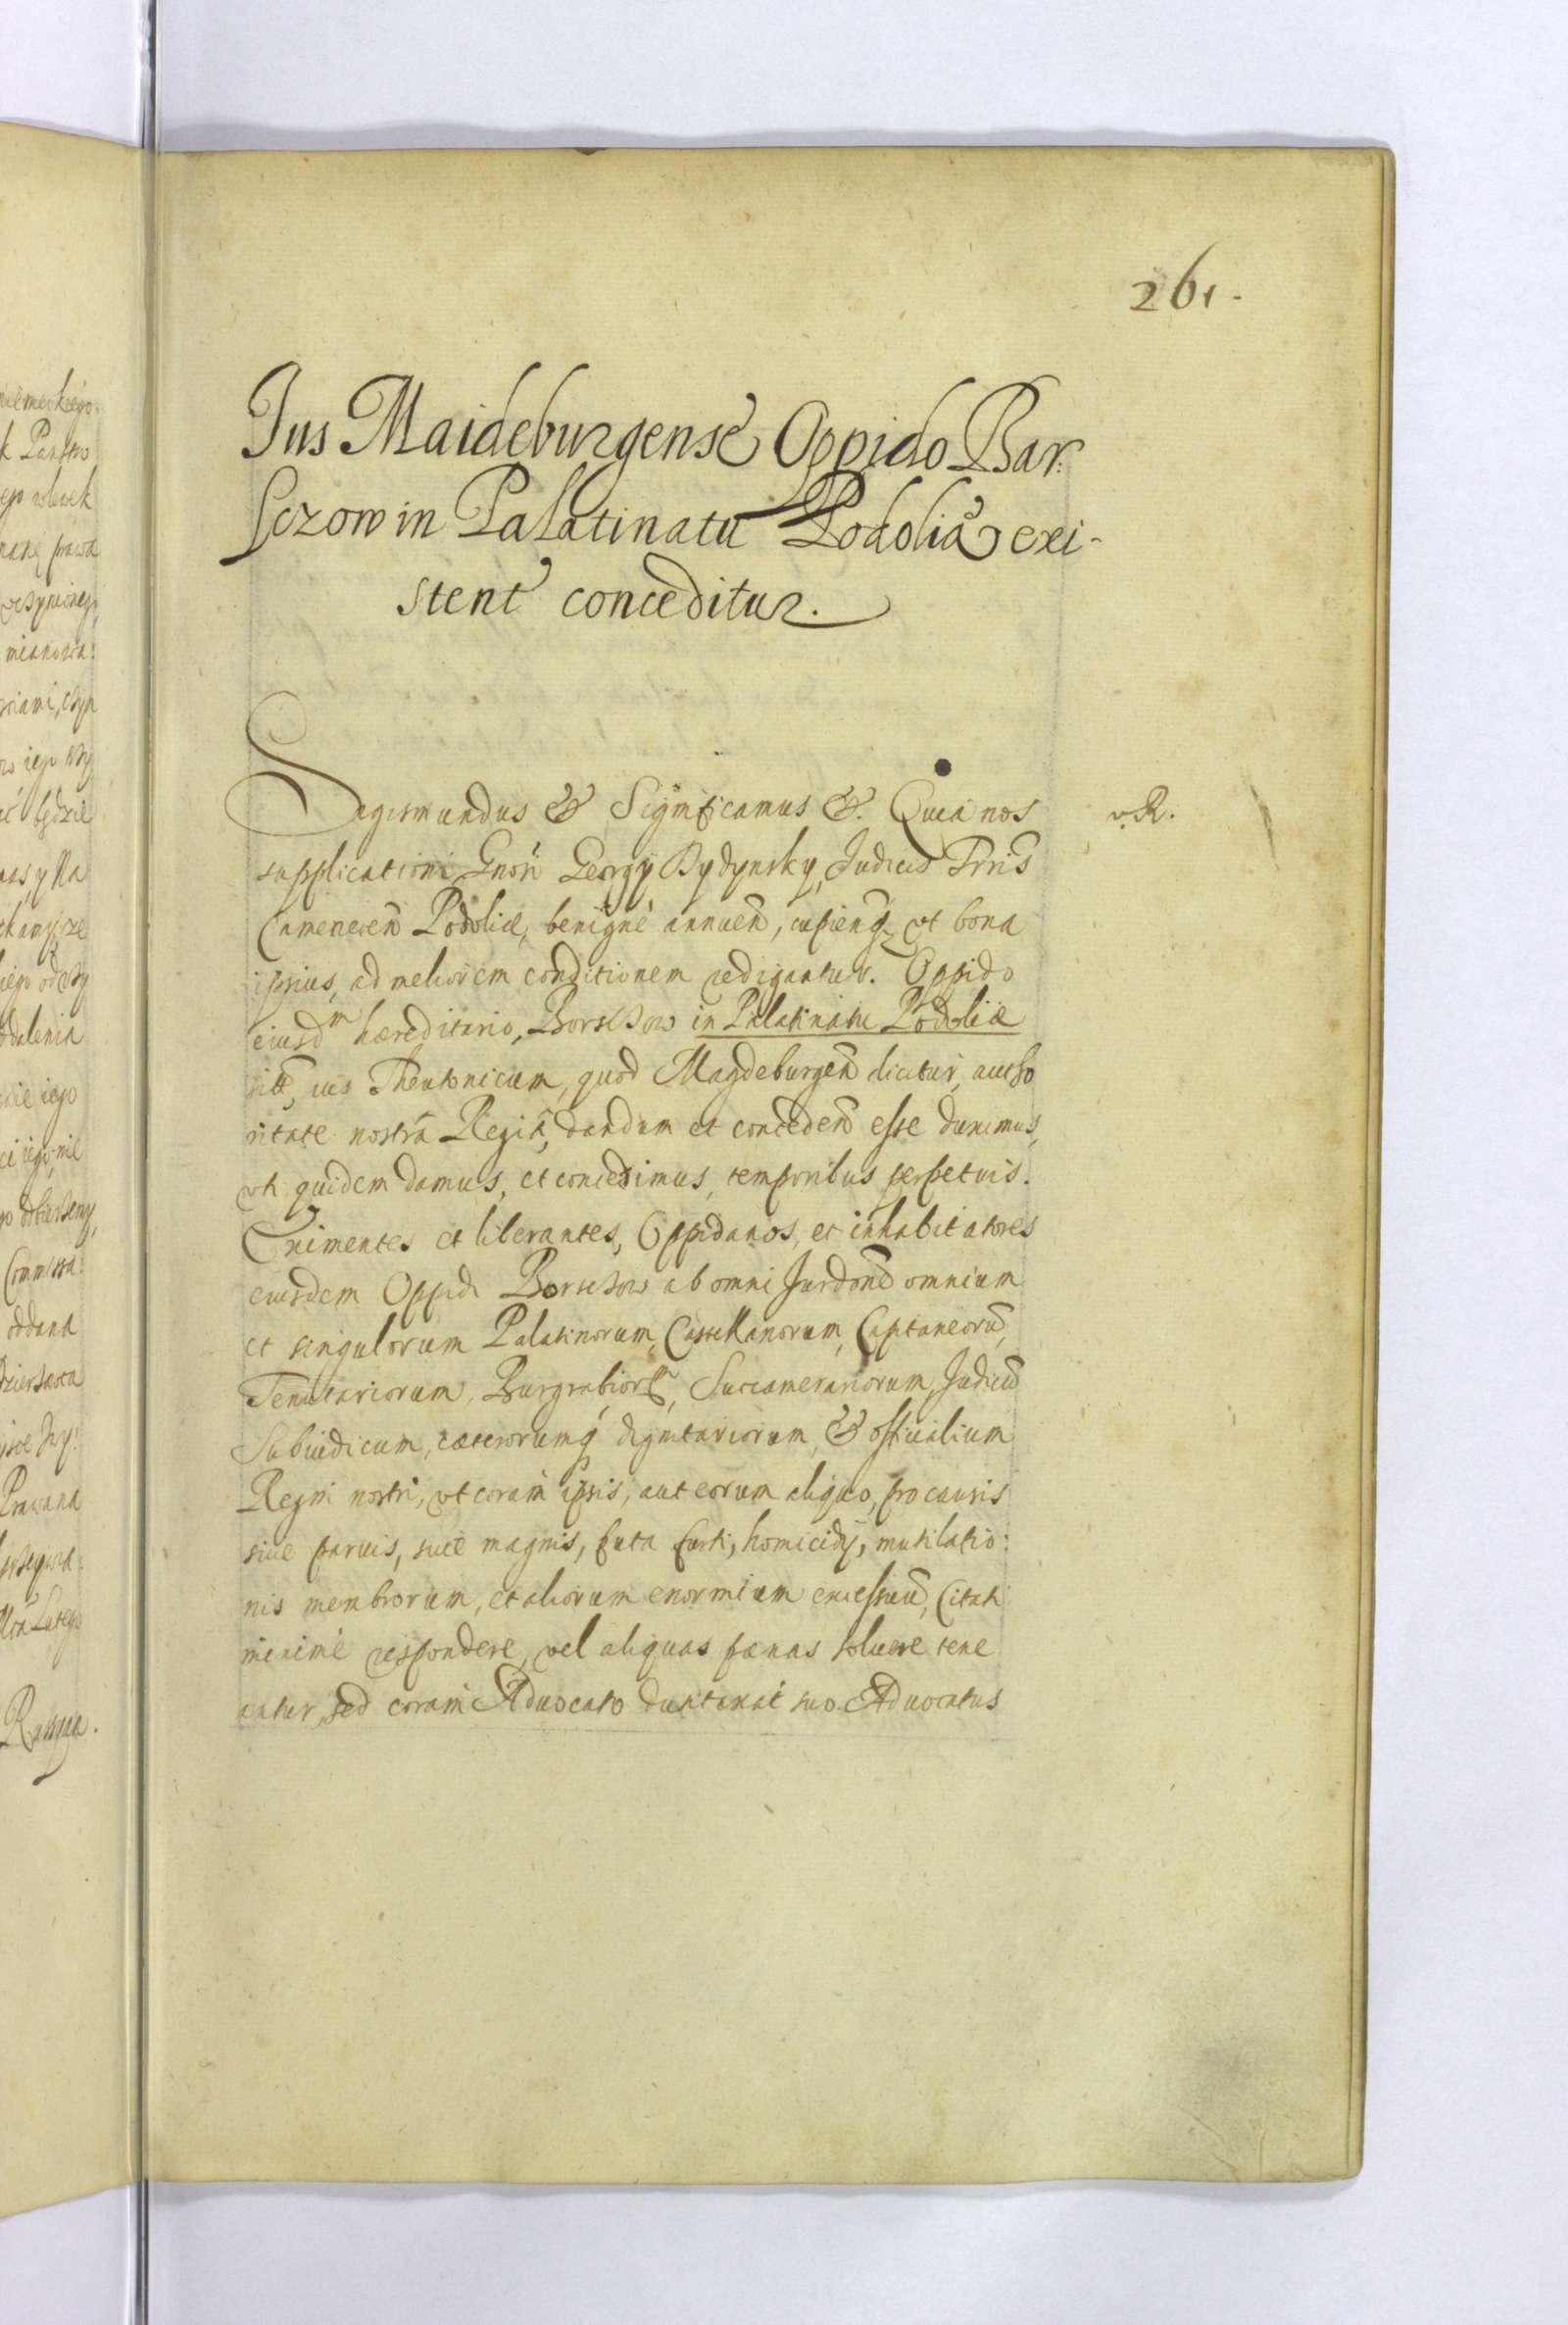 261.
Jus Maideburgense Oppido Bar:
sczow in Palatinatu Podoliæ exi-
stent conceditur.
Sagismundus & Significamus &. Quia nos
v. R.
supplicationi Gnosi Georgy Dydynsky, Judicis Trris
Camenecen Podoliæ, benigne annuen, cupienq vt bona
ipsius, ad meliorem conditionem redigantur. Oppido
eiusdm hæreditario, Borsczow in Palatinatu Podoliæ
sitt, ius Theutonicum, quod Magdeburgen dicitur, autho
ritate nostra Regia, dandum et conceden esse duximus,
vti quidem damus, et concedimus, temporibus perpetuis.
Eximentes et liberantes, Oppidanos, et inhabitatores
eiusdem Oppidi Borsczow ab omni Jurdone omnium
et singulorum Palatinorum, Castellanorum, Captaneoru,
Tenutariorum, Burgrabior, Succamerariorum, Judicu
Subiudicum, cæterorumq dignitariorum, & officialium
Regni nostri, vt coram ipsis, aut eorum aliquo, pro causis
siue paruis, siue magnis, puta furti, homicidy, mutilatio:
nis membrorum, et aliorum enormium excessuu, Citati
minime respondere, vel aliquas pænas soluere tene
antur, sed coram Aduocato duntaxat suo. Aduocatus